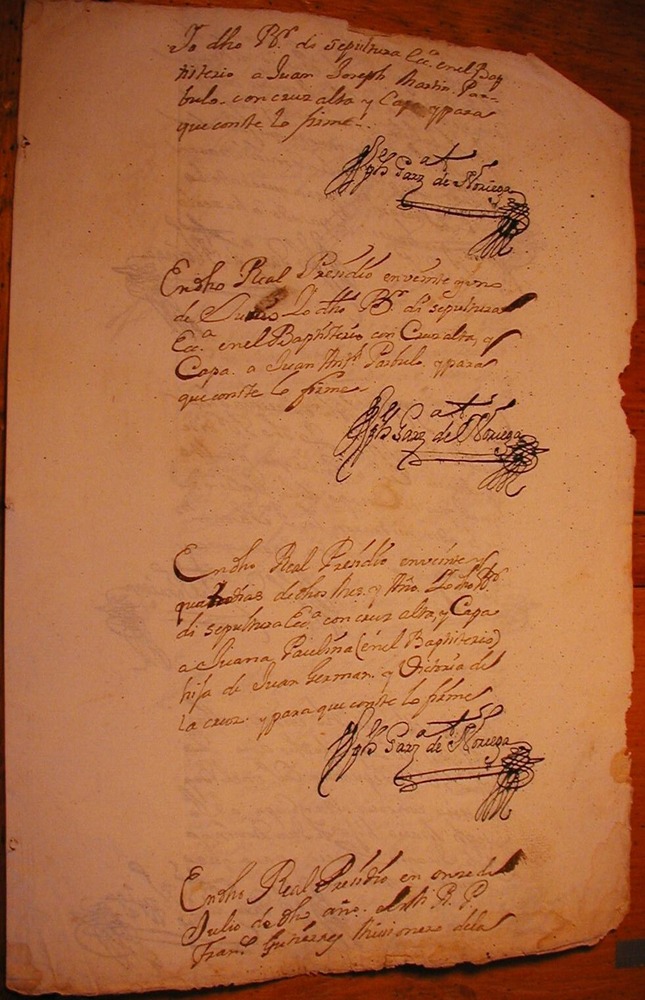 Yo dho Br. di sepultura Ecca. en el Bap
tisterio a Juan Joseph Martin Par-
bulo. con cruz alta y Capa y para
que conste lo firme.
Garza de Noriega
En dho Real Presidio en veinte y uno
de Lo dho Br. di sepultura
Ecca. en el Baptisterio con Cruz alta, y
Capa. a Juan Anto. Parbulo. y para
que conste lo firme
Garza de Noriega
En dho Real Presidio en veinte y
quatro dias de dhos Mes. y Año. Yo dho Br.
di sepultura Ecca. con cruz alta, y Capa
a Juana Paulina (en el Baptisterio)
hija de Juan German. y Victoria de
la cruz. y para que conste lo firme
Garza de Noriega
En dho Real Presidio en onze de
Julio de dho año. el R. P.
Franco. Gutierrez Missionero de la